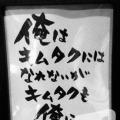 俺は
キムタクには
なれないがい
キムタクも
俺に